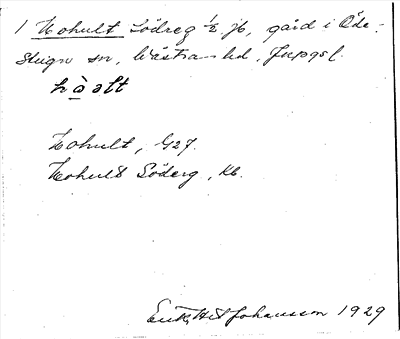 1 Hohult Södreg ½ fb, gård i Öde-
stugu sn, Västra hd, Jnkpgs l.
hò̲ətt
Hohult, G27.
Hohult Söderg, Kb.
Erik H:st Johansson 1929